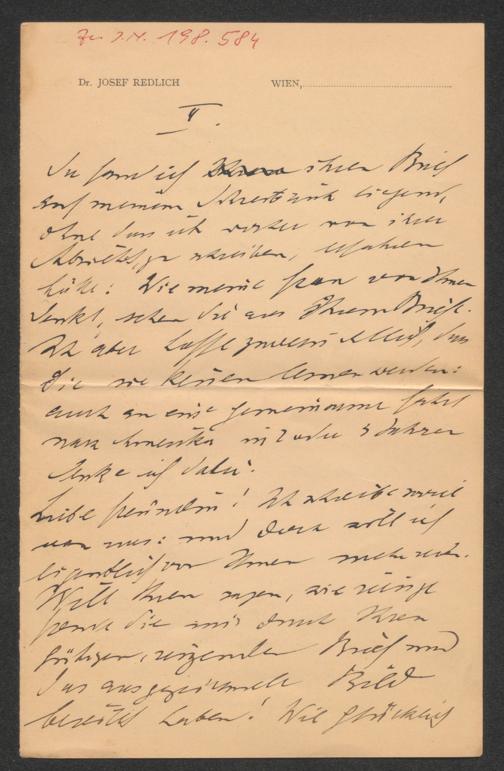 Zu I.N. 198.584
Dr. JOSEF REDLICH WIEN,
II.
Da fand ich ihren Brief
auf meinem liegend,
ohne dass ich vorher von ihrer
Absicht, zu schreiben, erfahren
hätte: Wie meine Frau von Ihnen
denkt, sehen Sie aus Ihrem Briefe.
Ich aber hoffe zuversichtlich, dass
Sie sie kennen lernen werden:
auch an eine gemeinsame Fahrt
nach Amerika in 2 oder 3 Jahren
denke ich dabei.
Liebe Freundin! Ich schreibe soviel
von uns: und doch will ich
eigentlich von Ihnen
Will Ihnen sagen, wie
Freude Sie mir durch Ihren
gütigen, reizenden Brief und
das ausgezeichnete Bild
bereitet haben! Wie glücklich